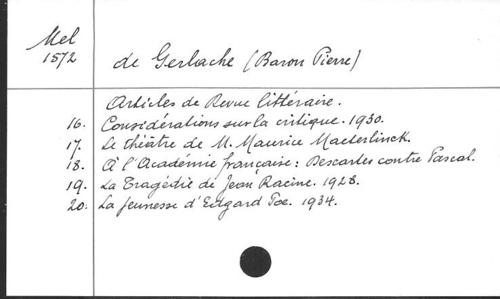 Mel
1572
de Gerlache (Baron Pierre)
Articles de Revue littéraire.
16. Considérations sur la critique. 1930.
17. Le théâtre de M. Maurice Maeterlinck.
18. A l'Académie française: Descartes contre Pascal.
19. La Tragédie de Jean Racine. 1928.
20. La jeunesse d'Edgard Poe. 1934.